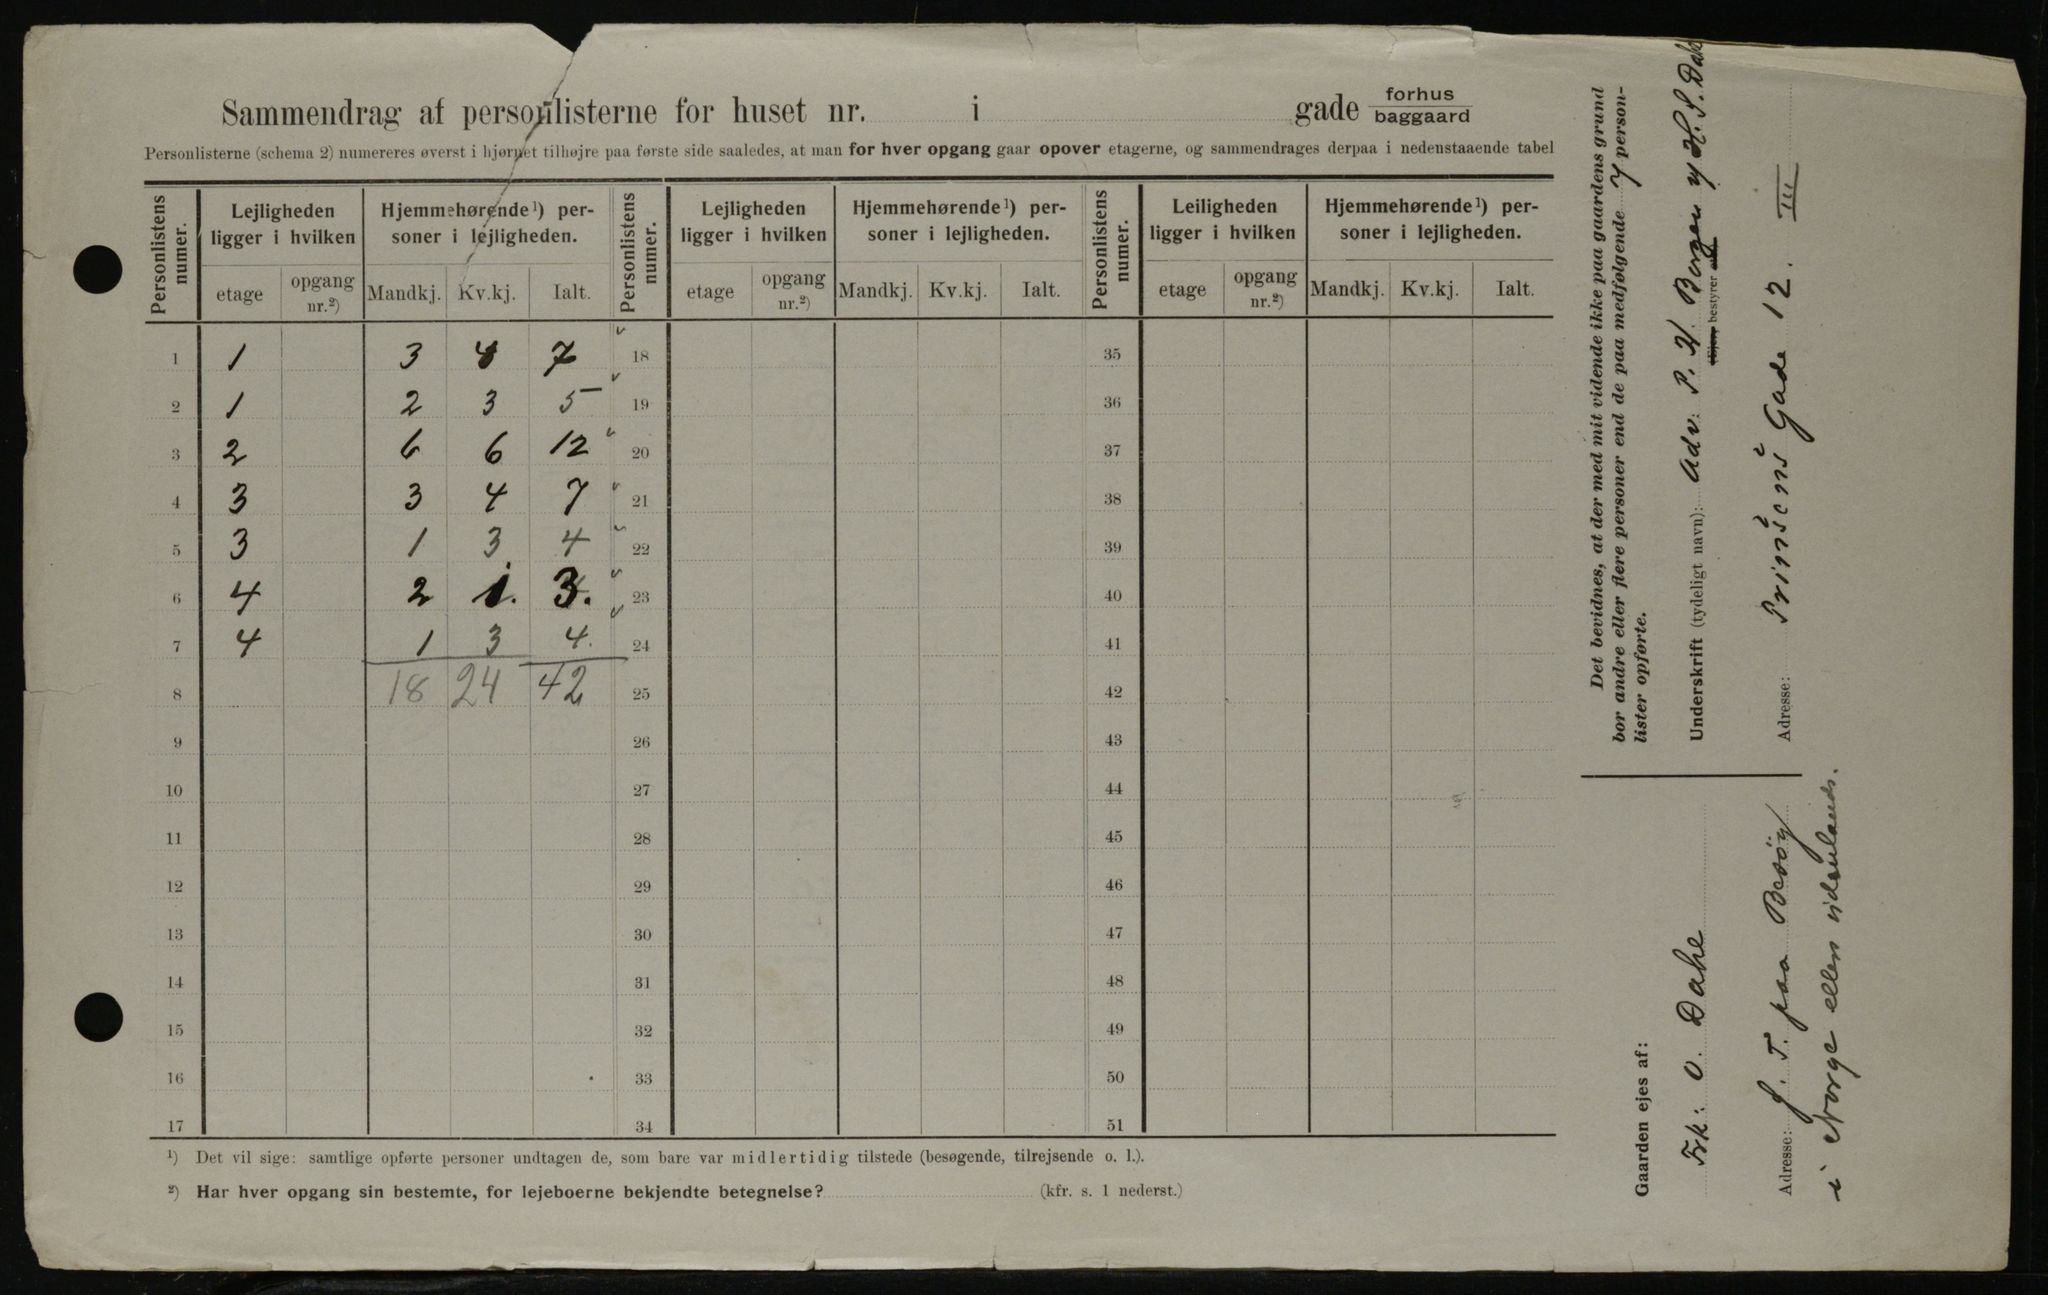 Sammendrag af personlisterne for huset nr. i gade forhus baggaard
Personlisterne (schema 2) numereres øverst i hjørnet tilhøjre paa første side saaledes, at man for hver opgang gaar opover etagerne, og sammendrages derpaa i nedenstaaende tabel
Personlistens numer. Lejligheden ligger i hvilken Hjemmehørende¹) personer i lejligheden. Personlistens numer. Lejligheden ligger i hvilken Hjemmehørende¹) personer i lejligheden. Personlistens numer. Leiligheden ligger i hvilken Hjemmehørende¹) personer i lejligheden.
etage opgang nr.²) Mandkj. Kv.kj. Ialt. etage opgang nr.²) Mandkj. Kv.kj. Ialt. etage opgang nr.²) Mandkj. Kv.kj. Ialt.
1 1 3 4 7 18 35
2 1 2 3 5 19 36
3 2 6 6 12 20 37
4 3 3 4 7 21 38
5 3 1 3 4 22 39
6 4 2 1. 3. 23 40
7 4 1 3 4. 24 41
8 18 24 42 25 42
9 26 43
10 27 44
11 28 45
12 29 46
13 30 47
14 31 48
15 32 49
16 33 50
17 34 51
¹) Det vil sige: samtlige opførte personer undtagen de, som bare var midlertidig tilstede (besøgende, tilrejsende o. l.).
²) Har hver opgang sin bestemte, for lejeboerne bekjendte betegnelse? (kfr. s. 1 nederst.)
Det bevidnes, at der med mit vidende ikke paa gaardens grund
bor andre eller flere personer end de paa medfølgende 7 person-
lister opførte.
Underskrift (tydeligt navn): Adv. P. H. Bergen H. S. Dahl
(Ejer, bestyrer
Adresse: Prinsens Gade 12. III
Gaarden ejes af:
Frk: O. Dahl
Adresse: J. T. paa Besøg
i Norge eller udenlands.